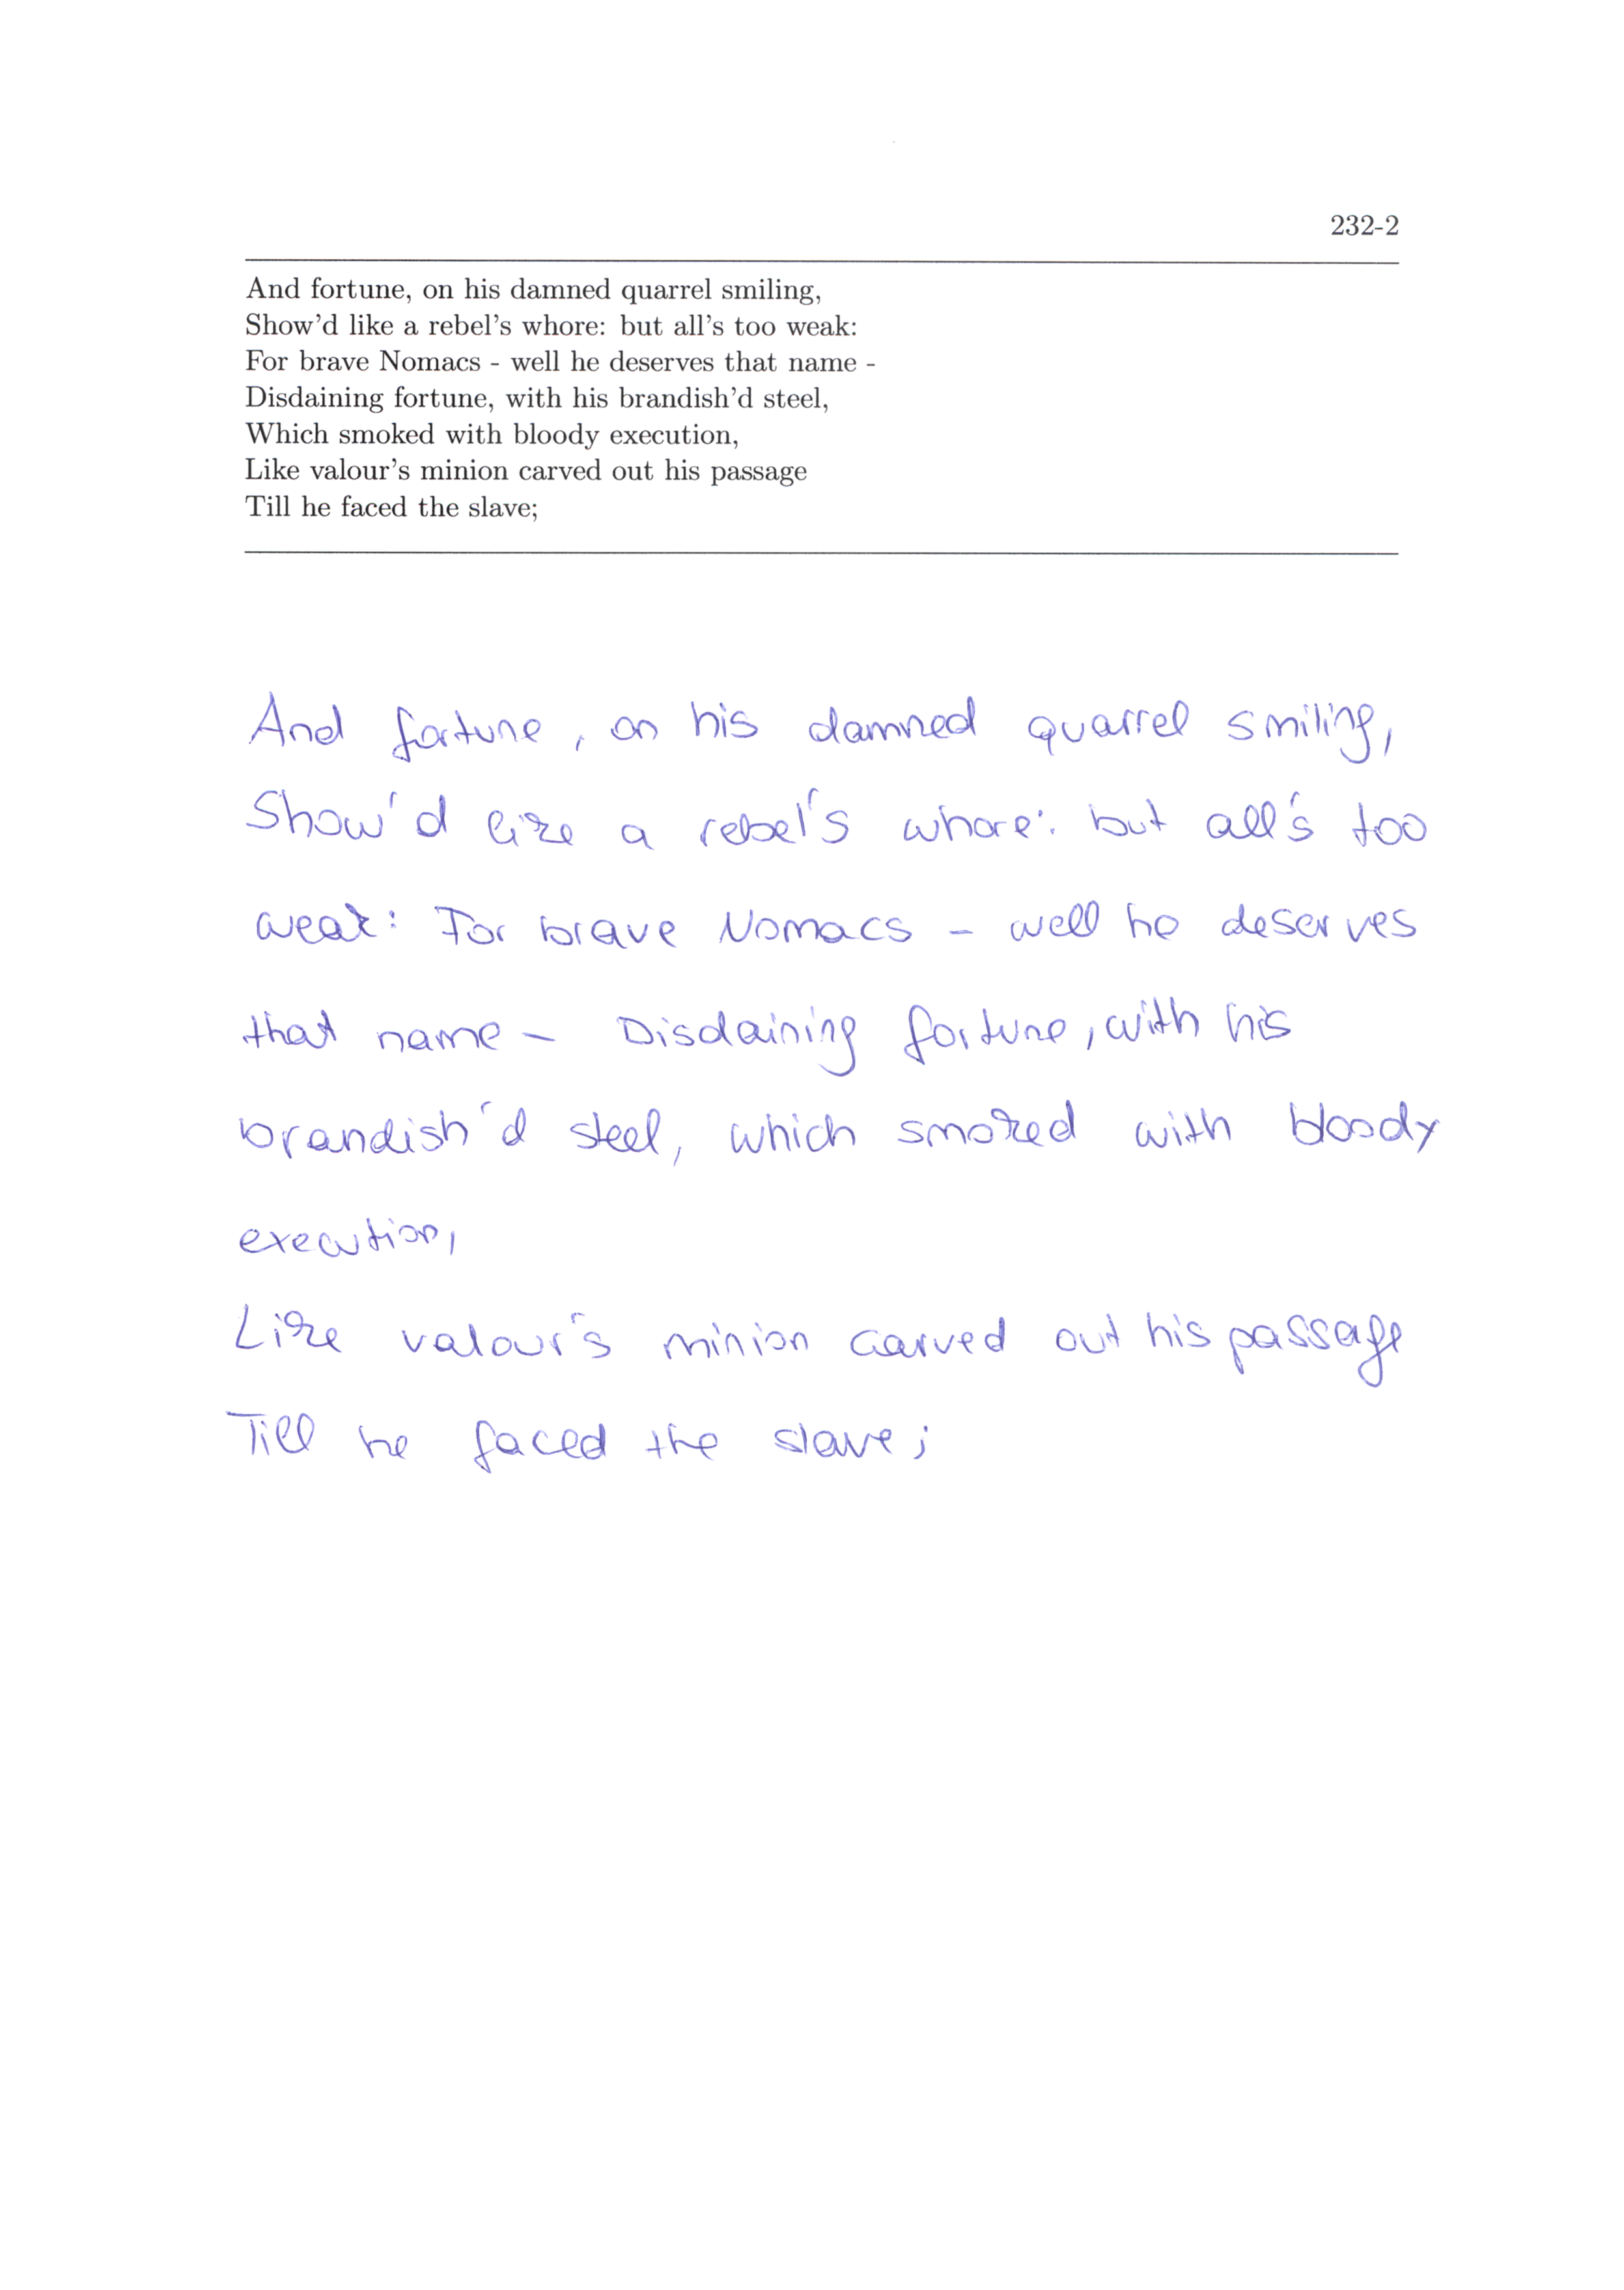 232-2
And fortune, on his damned quarrel smiling,
Show'd like a rebel's whore: but all's too weak:
For brave Nomacs - well he deserves that name -
Disdaining fortune, with his brandish'd steel,
Which smoked with bloody execution,
Like valour's minion carved out his passage
Till he faced the slave;
And fortune, on his damned quarrel smiling,
Show'd like a rebel's whore: but all's too
weak: For brave Nomacs - well he deserves
that name - Disdaining fortune, with his
brandish'd steel, which smoked with bloody
execution,
Like valour's minion carved out his passage
Till he faced the slave;